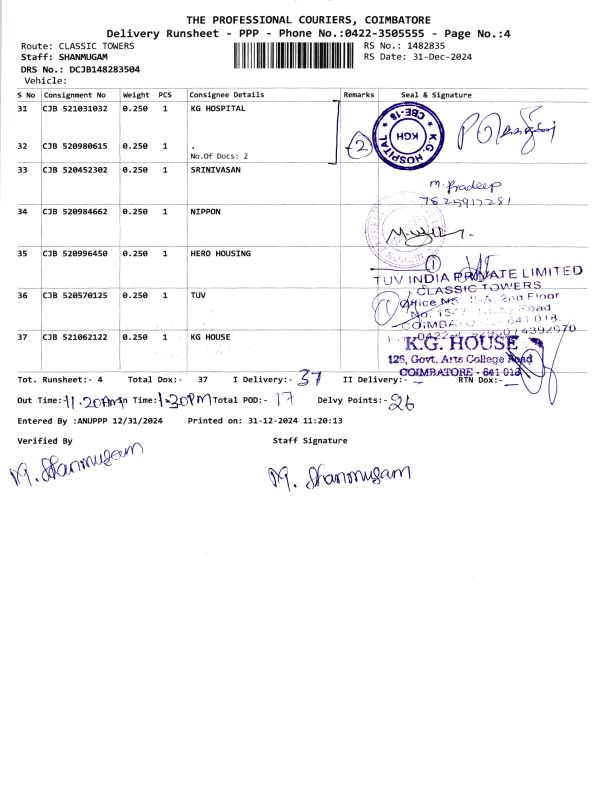 THE PROFESSIONAL COURIERS, COIMBATORE
Delivery Runsheet - PPP - Phone No.:0422-3505555 - Page No.:4
Route: CLASSIC TOWERS RS No.: 1482835
Staff: SHANMUGAM RS Date: 31-Dec-2024
DRS No.: DCJB148283504
Vehicle:
S No Consignment No Weight PCS Consignee Details Remarks Seal & Signature
31 CJB 521031032 0.250 1 KG HOSPITAL
K.G. HOSPITAL * CBE-18 * KGH
32 CJB 520980615 0.250 1 . 2
No.Of Docs: 2
33 CJB 520452302 0.250 1 SRINIVASAN
M. Pradeep
34 CJB 520984662 0.250 1 NIPPON
35 CJB 520996450 0.250 1 HERO HOUSING
1
TUV INDIA PRIVATE LIMITED
CLASSIC TOWERS
36 CJB 520570125 0.250 1 TUV
Office No. 2nd Floor
Road
COIMBATORE - 641 018.
37 CJB 521062122 0.250 1 KG HOUSE
K.G. HOUSE
125, Govt. Arts College Road
COIMBATORE - 641 018
Tot. Runsheet:- 4 Total Dox:- 37 I Delivery:- 37 II Delivery:- - RTN Dox:- -
Out Time: 11.20Am In Time: 1.30PM Total POD:- 17 Delvy Points:- 26
Entered By :ANUPPP 12/31/2024 Printed on: 31-12-2024 11:20:13
Verified By Staff Signature
M. Shanmugam M. Shanmugam